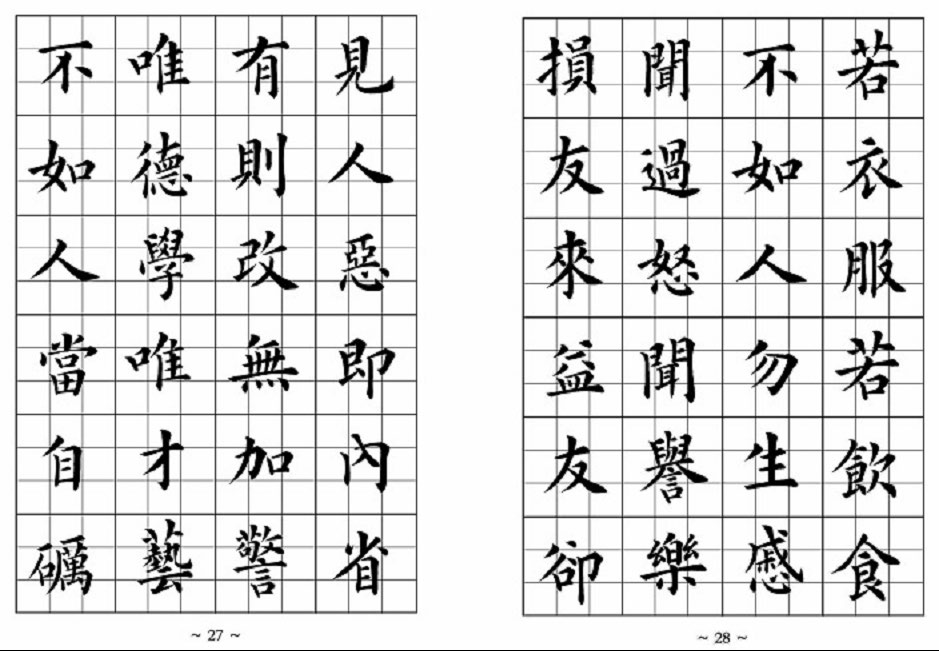 見人惡即內省
有則改無加警
唯德學唯才藝
不如人當自礪
~ 27 ~
若衣服若飲食
不如人勿生慼
聞過怒聞譽樂
損友來益友卻
~ 28 ~